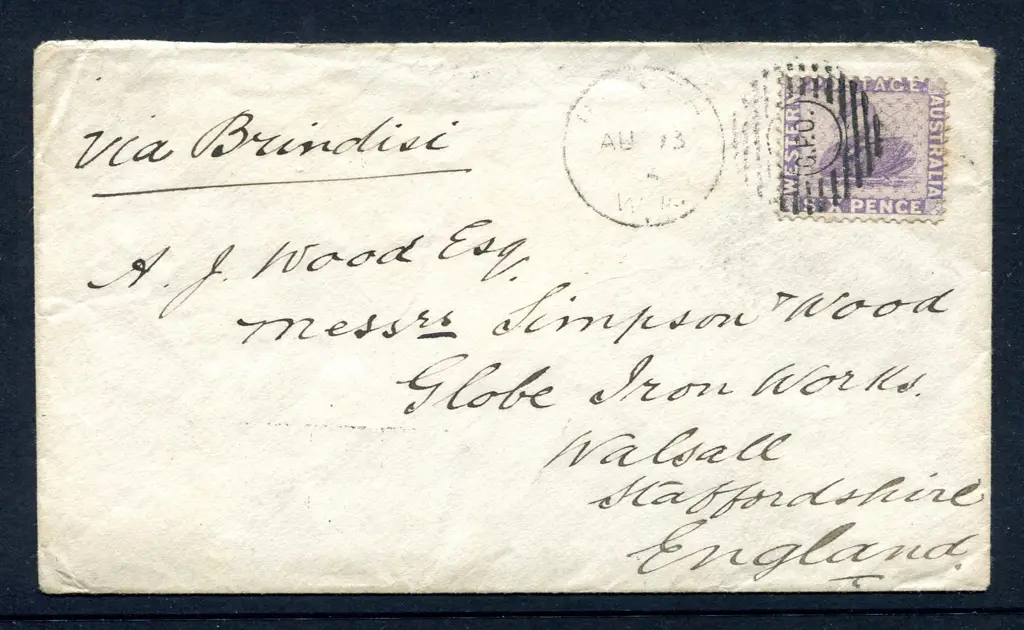 via Brindisi
AU 13
W.A.
G.P.O.
POSTAGE
WESTERN
AUSTRALIA
SIX PENCE
A. J. Wood Esq.
Messrs Simpson & Wood
Globe Iron Works.
Walsall
Staffordshire
England.